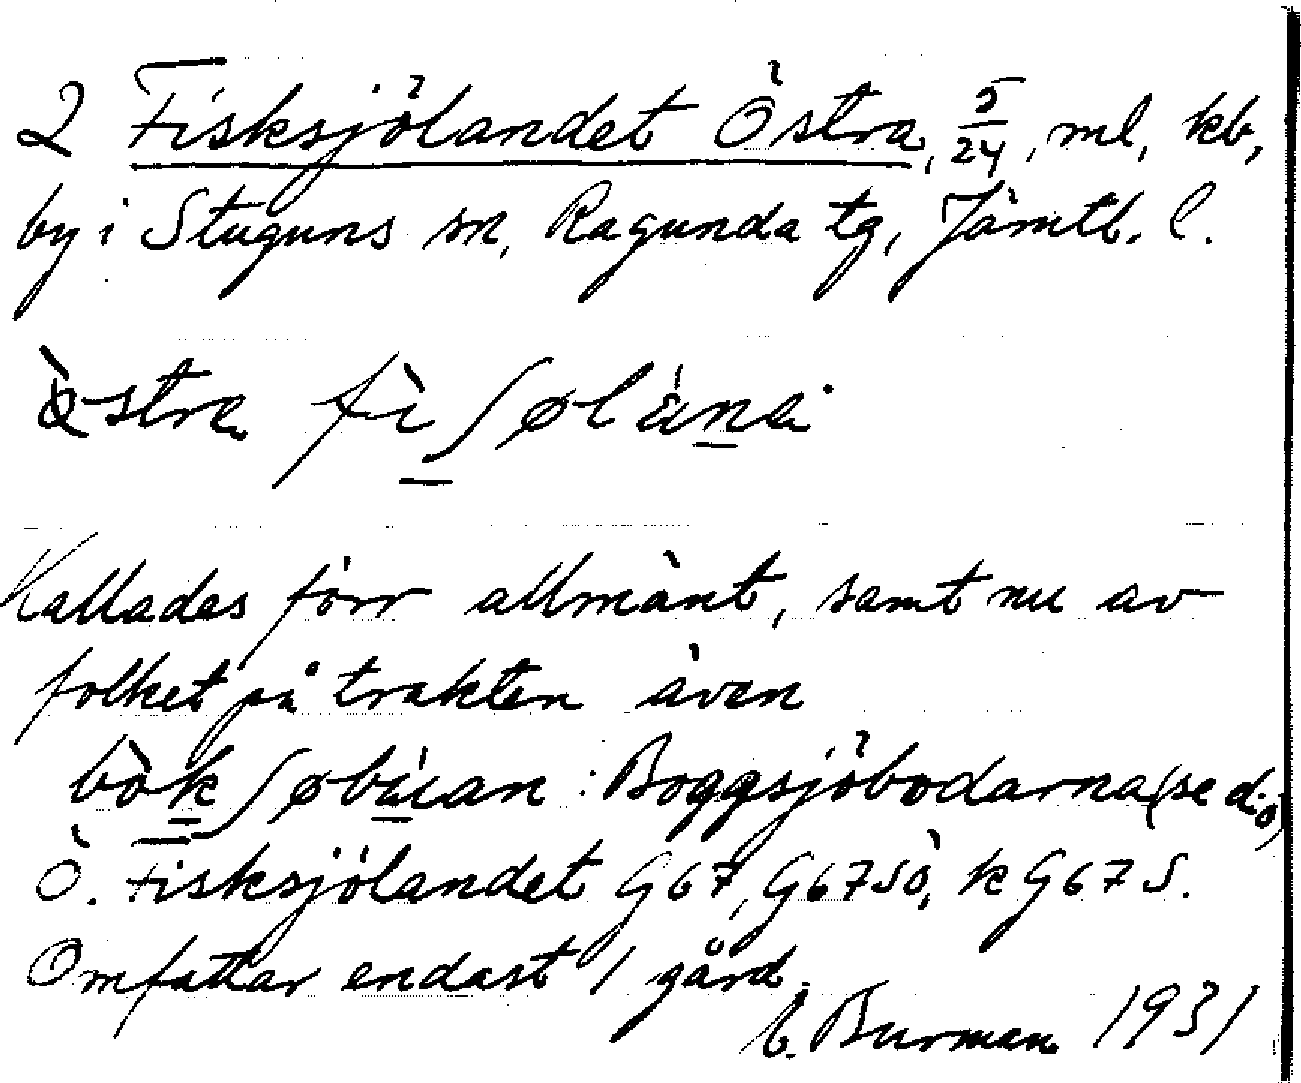 2 Fisksjölandet Östra, 5/24, ml, kb,
by i Stuguns sn, Ragunda tg, Jämtl. l.
Kallades förr allmänt, samt nu av
folket på trakten även
Boggsjöbodarna (se d:o)
Ö. Fisksjölandet G67, G67SÖ, k G67S.
Omfattar endast 1 gård.
Burman 1931